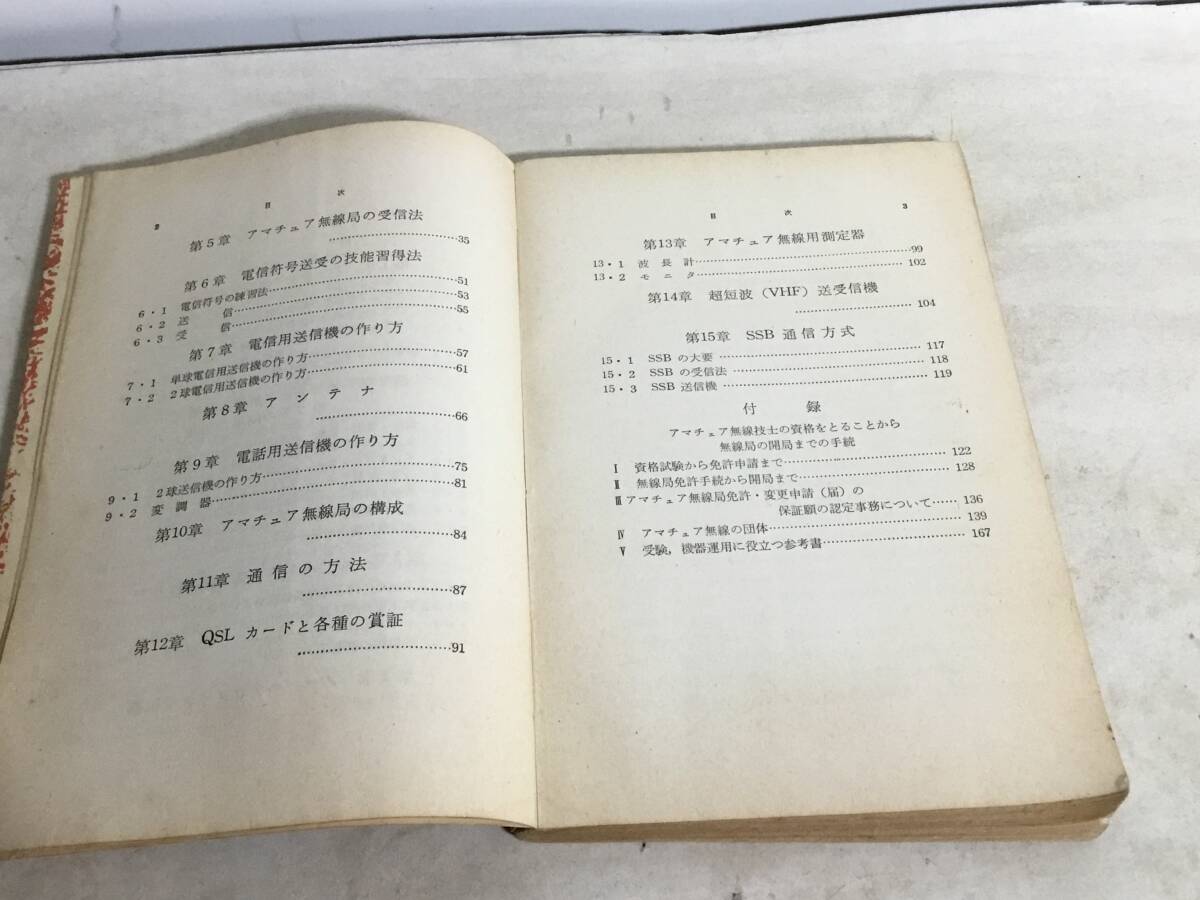 2 目次
第5章 アマチュア無線局の受信法
……………………35
第6章 電信符号送受の技能習得法
……………………51
6・1 電信符号の練習法……………………53
6・2 送信……………………55
6・3 受信
第7章 電信用送信機の作り方
……………………57
7・1 単球電信用送信機の作り方……………………61
7・2 2球電信用送信機の作り方
第8章 アンテナ
……………………66
第9章 電話用送信機の作り方
……………………75
9・1 2球送信機の作り方……………………81
9・2 変調器
第10章 アマチュア無線局の構成
……………………84
第11章 通信の方法
……………………87
第12章 QSL カードと各種の賞証
……………………91
目次 3
第13章 アマチュア無線用測定器
13・1 波長計……………………99
13・2 モニタ……………………102
第14章 超短波(VHF)送受信機
……………………104
第15章 SSB 通信方式
15・1 SSB の大要……………………117
15・2 SSB の受信法……………………118
15・3 SSB 送信機……………………119
付録
アマチュア無線技士の資格をとることから
無線局の開局までの手続
Ⅰ 資格試験から免許申請まで……………………122
Ⅱ 無線局免許手続から開局まで……………………128
Ⅲ アマチュア無線局免許・変更申請(届)の
保証願の認定事務について……136
Ⅳ アマチュア無線の団体……………………139
Ⅴ 受験,機器運用に役立つ参考書……………………167